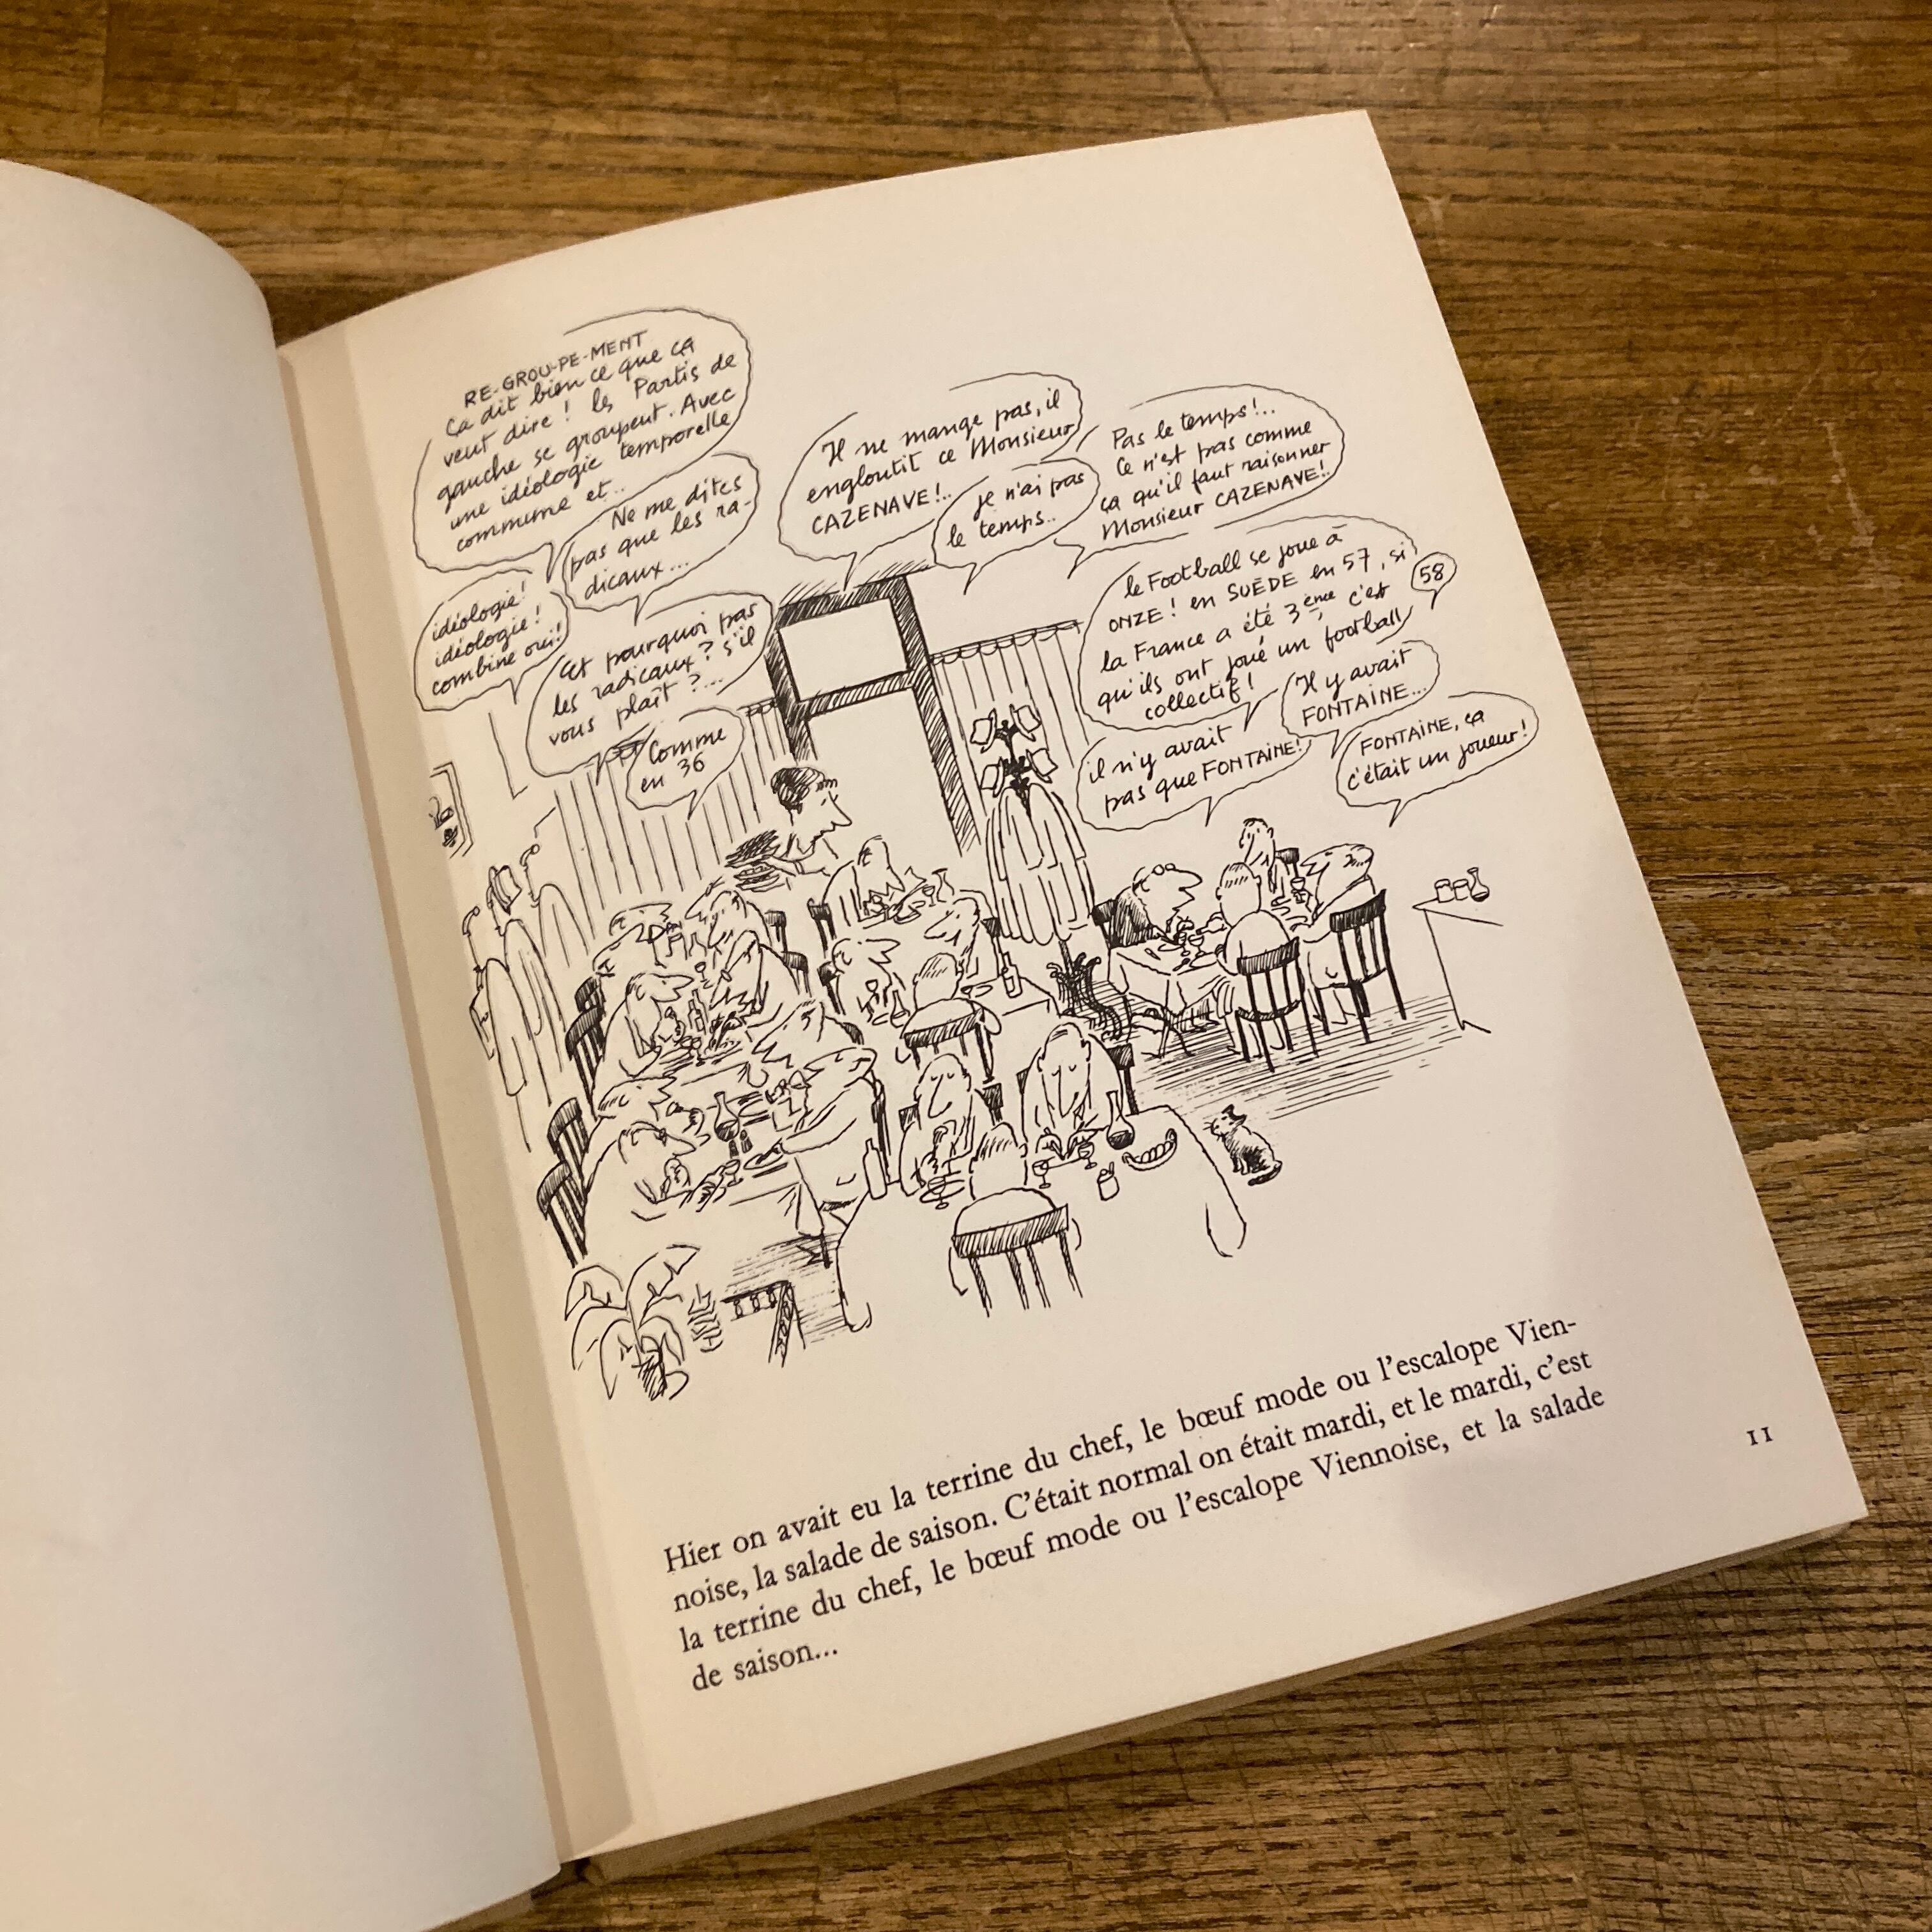 RE-GROU-PE-MENT
Ça dit bien ce que ça
veut dire ! les Partis de
gauche se groupent. Avec
une idéologie temporelle
commune et..
Ne me dites
pas que les ra-
dicaux...
idéologie !
idéologie !
combine oui !
Et pourquoi pas
les radicaux ? s'il
vous plaît ?...
Comme
en 36
Il ne mange pas, il
engloutit ce Monsieur
CAZENAVE !..
je n'ai pas
le temps..
Pas le temps !..
Ce n'est pas comme
ça qu'il faut raisonner
Monsieur CAZENAVE !..
le Football se joue à
ONZE ! en SUÈDE en 57, si
la France a été 3ème, c'est
qu'ils ont joué un football
collectif !
58
Il y avait
FONTAINE...
il n'y avait
pas que FONTAINE !
FONTAINE, ça
c'était un joueur !
Hier on avait eu la terrine du chef, le bœuf mode ou l'escalope Vien-
noise, la salade de saison. C'était normal on était mardi, et le mardi, c'est
la terrine du chef, le bœuf mode ou l'escalope Viennoise, et la salade
de saison...
11